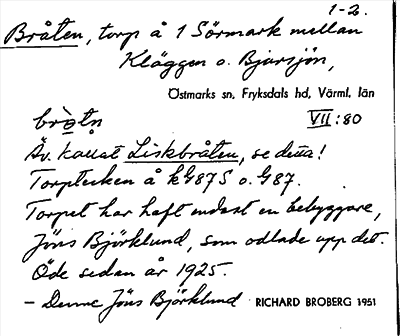 1-2.
Bråten, torp å 1 Sörmark mellan
Kläggen o. Bjursjön,
Östmarks sn, Fryksdals hd, Värml. län
brɑ̀tn̥ VII:80
Äv. kallat Liskbråten, se detta!
Torptecken å k G87S o. G87.
Torpet har haft endast en bebyggare,
Jöns Björklund, som odlade upp det.
Öde sedan år 1925.
– Denne Jöns Björklund RICHARD BROBERG 1951